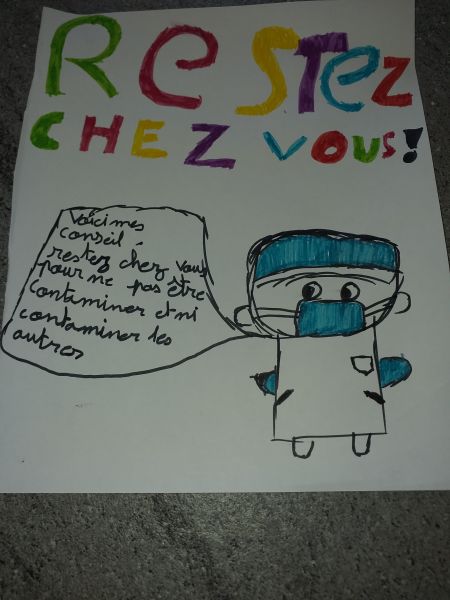 RESTEZ
CHEZ VOUS!
Voici mes
conseil,
restez chez vous
pour ne pas être
contaminer et ni
contaminer les
autres